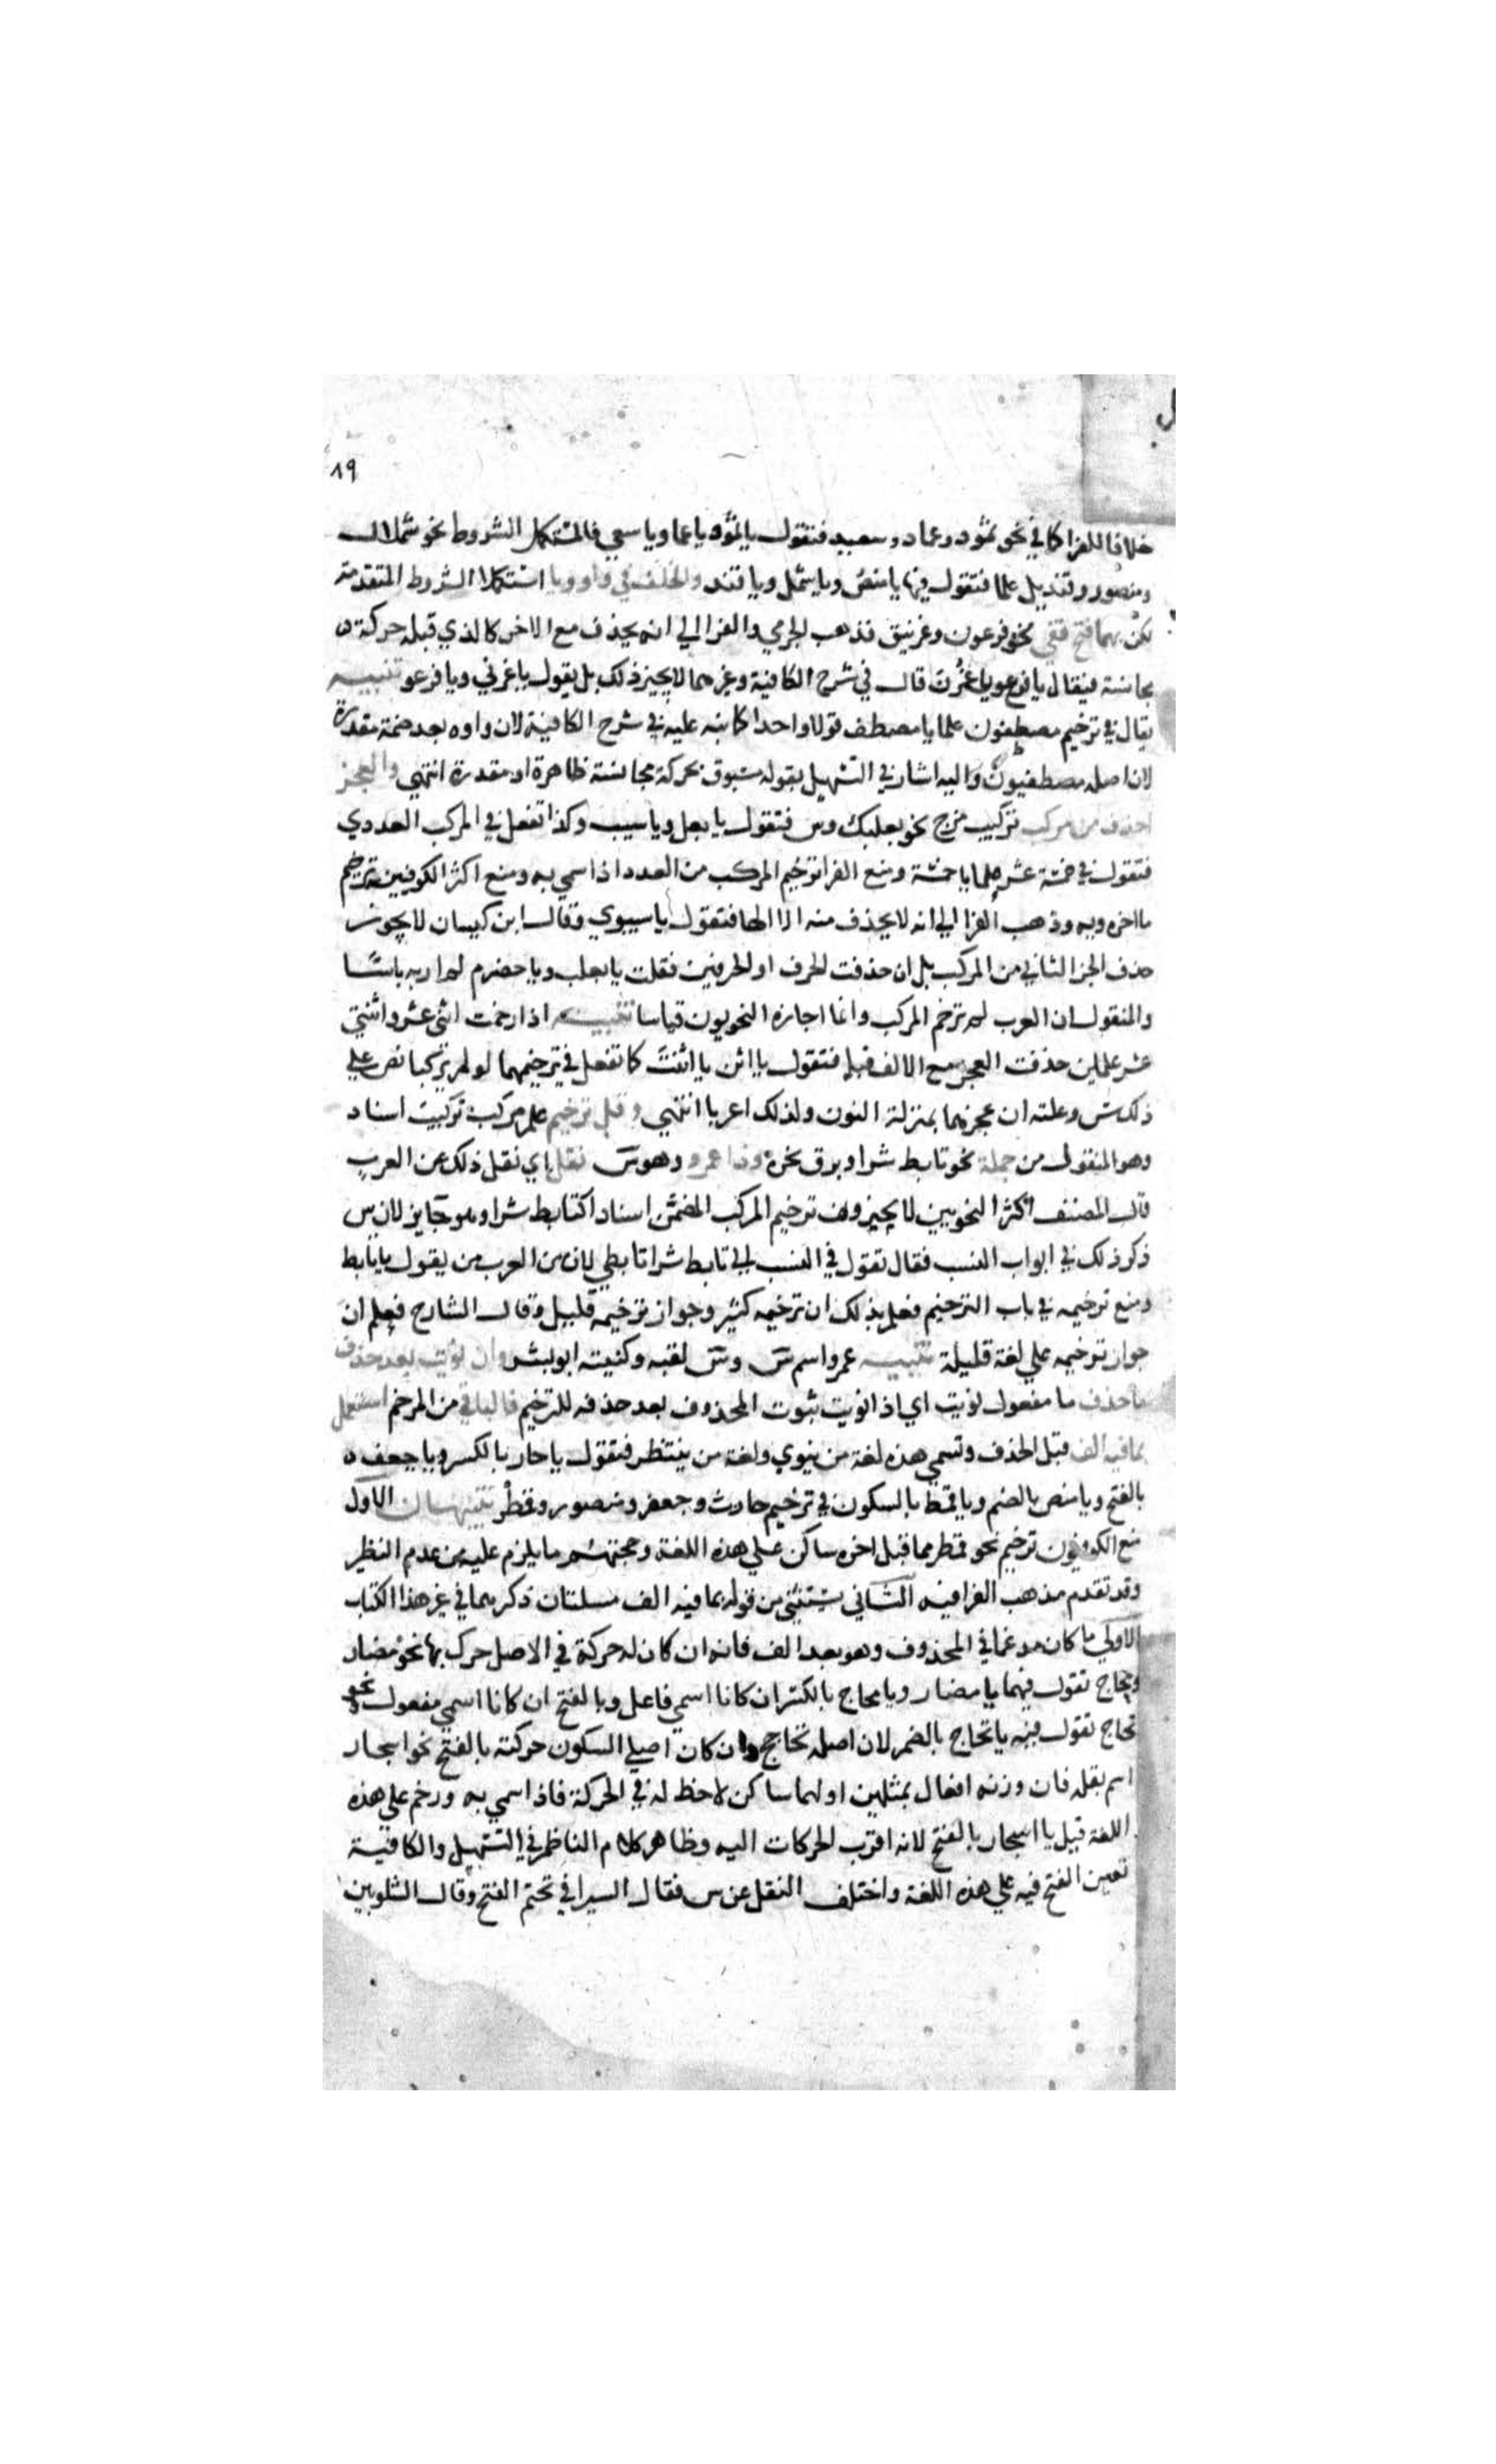 ١٩
خلافا للفرا كما في نحو ثمود وعماد وسعيد فتقول يا ثمو ويا عما ويا سعي فالمستكمل الشروط نحو شملال
ومنصور وقنديل علما فتقول فيها يا منص ويا شمل ويا قند والخلف في واو ويا استكملا الشروط المتقدمة
لكن بهما فتح قفي نحو فرعون وغرنيق فذهب الجرمي والفرا الي انه يحذف مع الاخر كالذي قبله حركة
مجانسة فيقال يا فرع ويا غرن قال في شرح الكافية وغيرهما لا يجيز ذلك بل يقول يا غرني ويا فرعو تنبيه
يقال في ترخيم مصطفون علما يا مصطف قولا واحدا كما نبه عليه في شرح الكافية لان واوه بعد ضمة مقدرة
لان اصله مصطفيون واليه اشار في التسهيل بقوله مسبوق بحركة مجانسة ظاهرة او مقدرة انتهي والعجز
احذف من مركب تركيب مزج نحو بعلبك وس فتقول يا بعل ويا سيب وكذا تفعل في المركب العددي
فتقول في خمسة عشر علما يا خمسة ومنع الفرا ترخيم المركب من العدد اذا سمي به ومنع اكثر الكوفيين ترخيم
ما اخره ويه وذهب الفرا الي انه لا يحذف منه الا الها فتقول يا سيبوي وقال ابن كيسان لا يجوز
حذف الجز الثاني من المركب بل ان حذفت الحرف او الحرفين فقلت يا بعلب ويا حضرم لم ار به باسا
والمنقول ان العرب لم ترخم المركب وانما اجازه النحويون قياسا تنبيه اذا رخمت اثني عشر واثنتي
عشر علمين حذفت العجز مع الالف قبله فتقول يا اثن يا اثنت كما تفعل في ترخيمهما لو لم تركبا نص علي
ذلك س وعلته ان عجزهما بمنزلة النون ولذلك اعربا انتهي وقل ترخيم علم مركب تركيب اسناد
وهو المنقول من جملة نحو تابط شرا وبرق نحره وذا عمرو وهو س نقل اي نقل ذلك عن العرب
قال المصنف اكثر النحويين لا يجيزون ترخيم المركب المضمن اسنادا كتابط شرا وهو جايز لان س
ذكر ذلك في ابواب النسب فقال تقول في النسب الي تابط شرا تابطي لان من العرب من يقول يا تابط
ومنع ترخيمه في باب الترخيم فعلم بذلك ان ترخيمه كثير وجواز ترخيمه قليل وقال الشارح فعلم ان
جواز ترخيمه علي لغة قليلة تنبيه عمرو اسم س وس لقبه وكنيته ابو بشر وان نويت بعد حذف
ما حذف ما مفعول نويت اي اذا نويت ثبوت المحذوف بعد حذفه للترخيم فالباقي من المرخم استعمل
بما فيه الف قبل الحذف وتسمي هذه لغة من ينوي ولغة من ينتظر فتقول يا حار بالكسر ويا جعف
بالفتح ويا منص بالضم ويا قمط بالسكون في ترخيم حارث وجعفر ومنصور وقمطر تنبيهان الاول
منع الكوفيون ترخيم نحو قمطر مما قبل اخره ساكن علي هذه اللغة وحجتهم ما يلزم عليه من عدم النظير
وقد تقدم مذهب الفرا فيه الثاني يستثني من قوله بما فيه الف مسلتان ذكرهما في غير هذا الكتاب
الاولي ما كان مدغما في المحذوف وهو بعد الف فانه ان كان له حركة في الاصل حرك بها نحو مضار
ومحاج تقول فيهما يا مضار ويا محاج بالكسر ان كانا اسمي فاعل وبالفتح ان كانا اسمي مفعول ونحو
تحاج تقول فيه يا تحاج بالضم لان اصله تحاجج وان كان اصلي السكون حركته بالفتح نحو اسحار
اسم بقلة فان وزنه افعال بمثلين اولهما ساكن لا حظ له في الحركة فاذا سمي به ورخم علي هذه
اللغة قيل يا اسحار بالفتح لانه اقرب الحركات اليه وظاهر كلام الناظم في التسهيل والكافية
تعين الفتح فيه علي هذه اللغة واختلف النقل عن س فقال السيرافي تحتم الفتح وقال الشلوبين